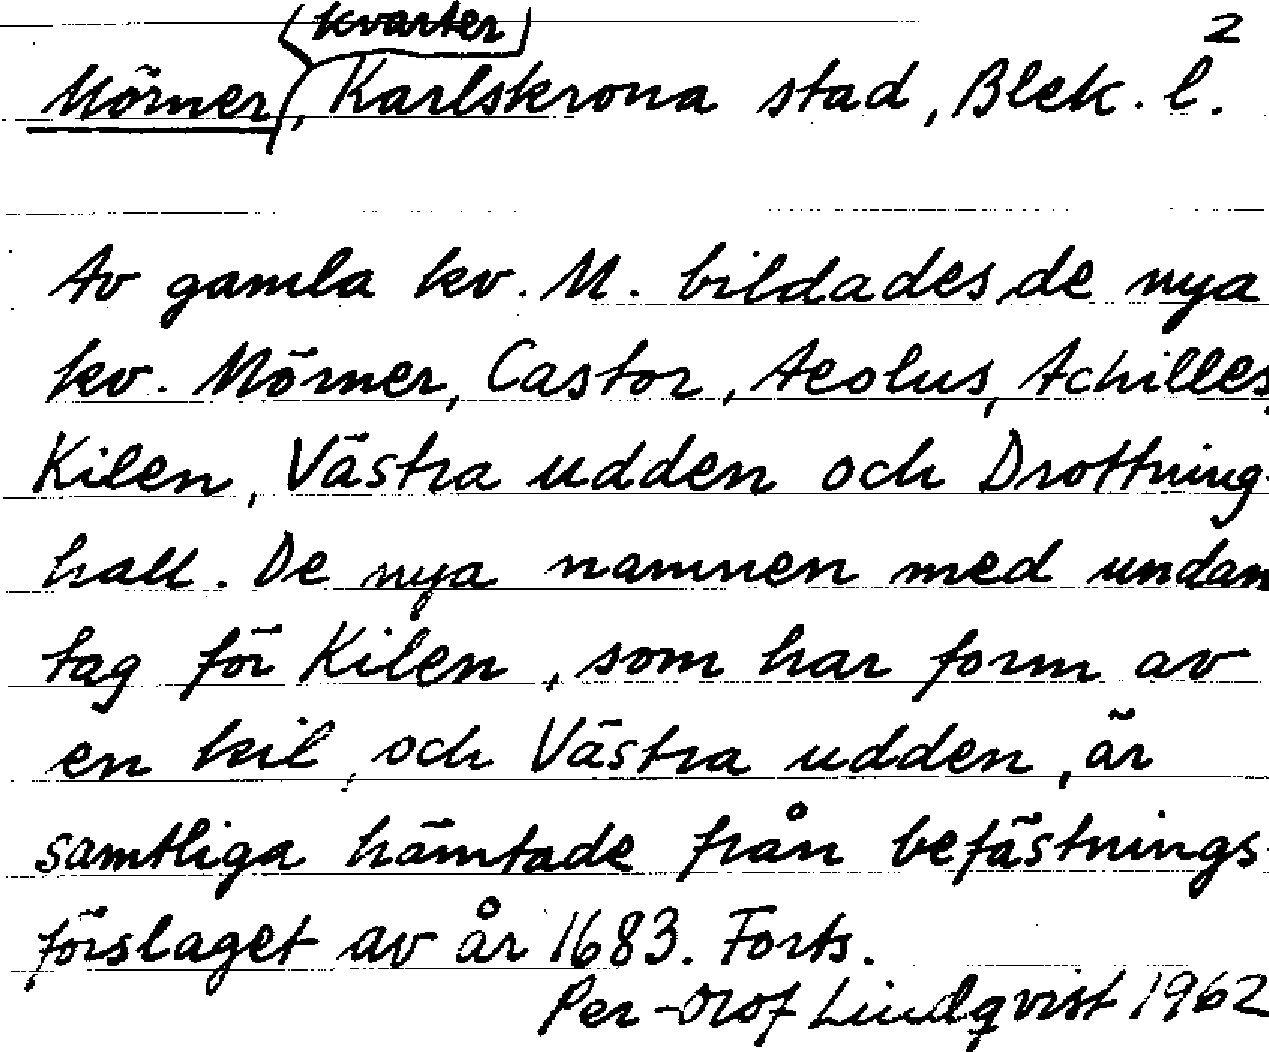 (kvarter) 2
Mörner, Karlskrona stad, Blek. l.
Av gamla kv. M. bildades de nya
kv. Mörner, Castor, Aeolus, Achilles,
Kilen, Västra udden och Drottning-
hall. De nya namnen med undan
tag för Kilen, som har form av
en kil, och Västra udden, är
samtliga hämtade från befästnings-
förslaget av år 1683. Forts.
Per-Olof Lindqvist 1962